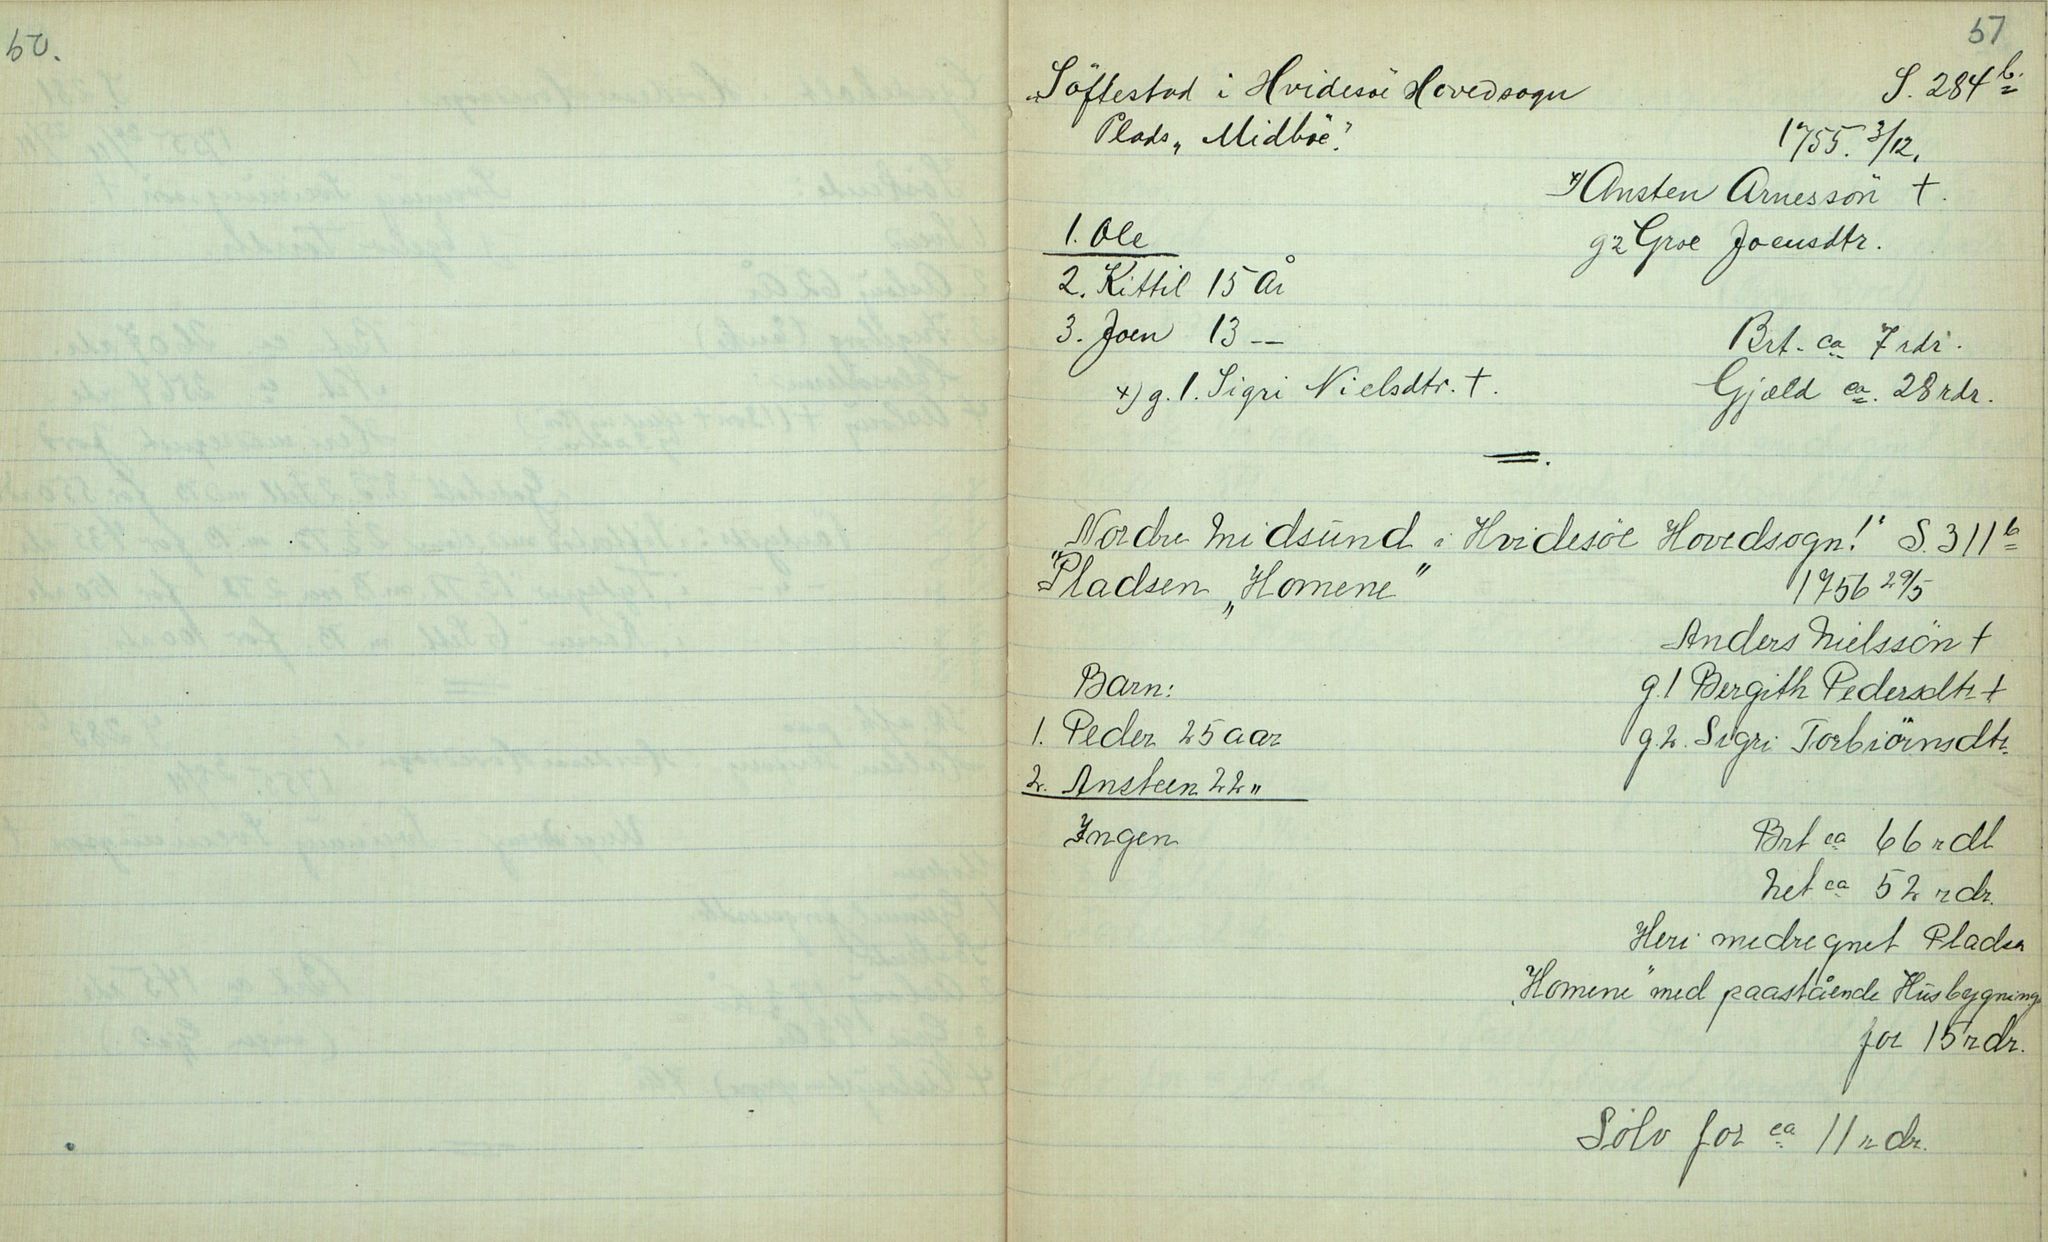 50.
57
„Söftestad i Hvidesöe Hovedsogn S. 284 b.
Plads „Midböe". 1755. 3/12.
x) Ansten Arnessön †.
1. Ole g 2 Groe Joensdtr.
2. Kittil 15 År
3. Joen 13 -- Brt. ca 7 rdr.
x) g. 1. Sigri Nielsdtr. †. Gjæld ca. 28 rdr.
Nordre Midsund i Hvidesöe Hovedsogn! S. 311 b
"Pladsen „Homene" 1756 29/5
Anders Nielssön †
Barn: g. 1 Bergith Pedersdtr †
1. Peder 25 aar g. 2. Sigri Torbiörnsdtr.
2. Ansteen 22 "
Ingen Brt ca 66 rdl
Net ca 52 rdr.
Heri medregnet Pladsn
„Homene" med paastående Husbygning
for 15 rdr.
Sölv for ca 11 rdr.